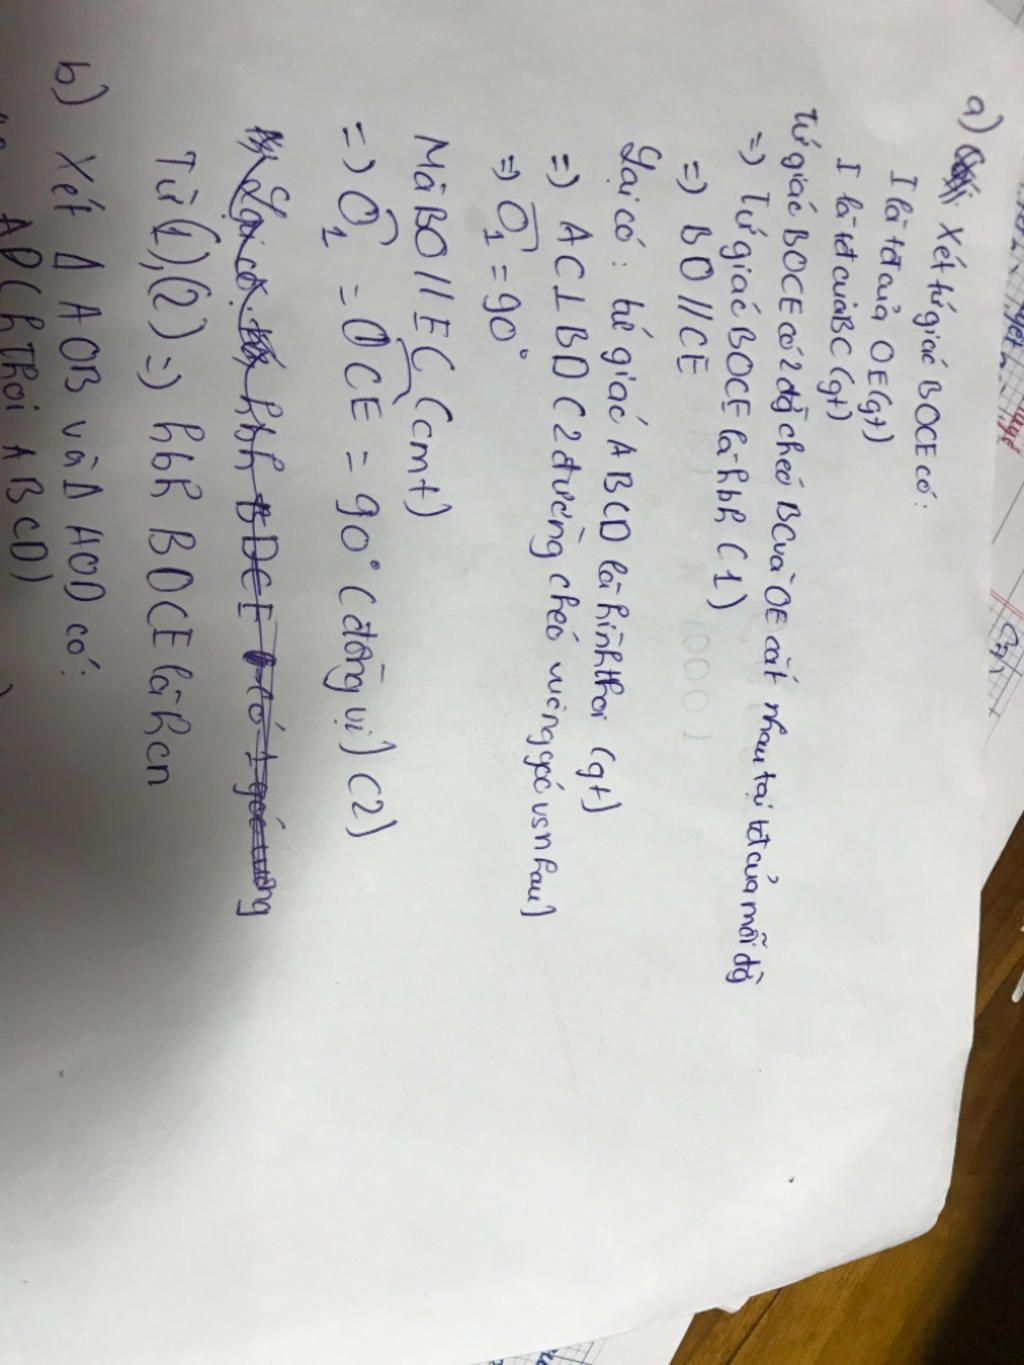 a) Xét tứ giác BOCE có:
I là tđ của OE (gt)
I là tđ của BC (gt)
Tứ giác BOCE có 2 đg chéo BC và OE cắt nhau tại tđ của mỗi đg
=) Tứ giác BOCE là hbh (1)
=) BO // CE
Lại có: tứ giác ABCD là hình thoi (gt)
=) AC ⊥ BD (2 đường chéo vuông góc vs nhau)
=) Ô₁ = 90°
Mà BO // EC (cmt)
=) Ô₁ = OCE = 90° (đồng vị) (2)
Lại có hbh BDCE có 1 góc vuông
Từ (1), (2) =) hbh BOCE là hcn
b) Xét Δ AOB và Δ AOD có:
AD (hthoi ABCD)